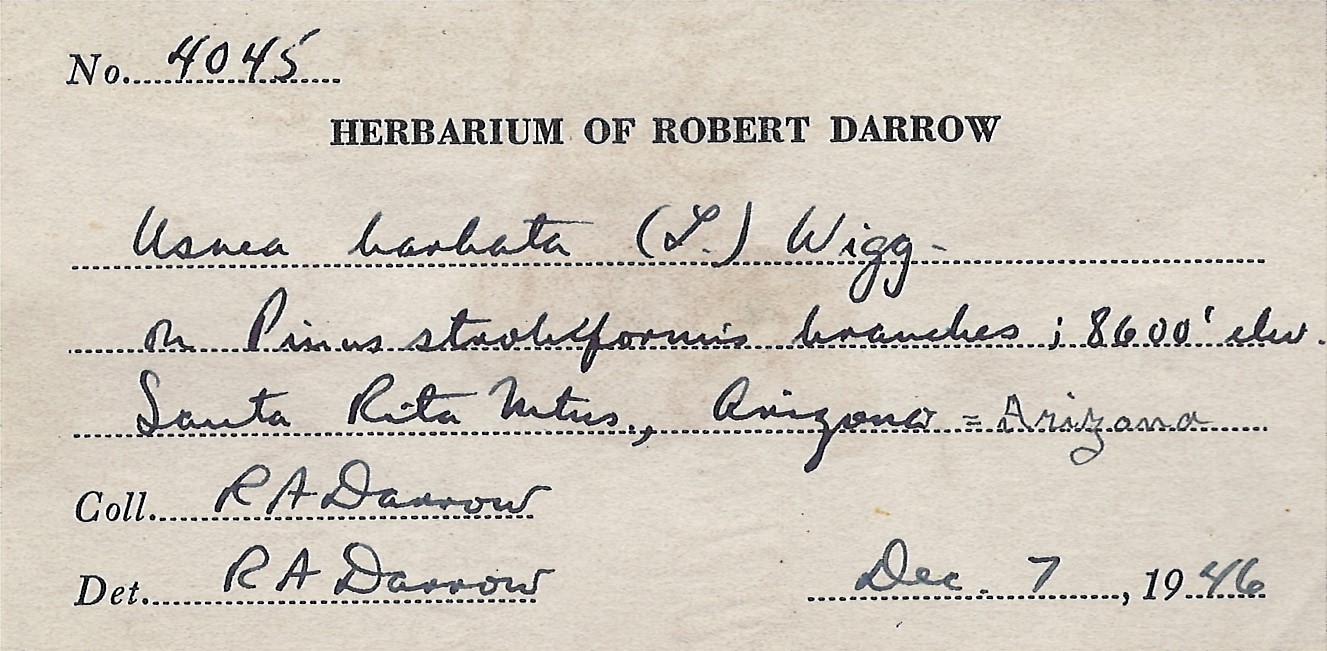 No. 4045
HERBARIUM OF ROBERT DARROW
Usnea barbata (L.) Wigg.
on Pinus strobiformis branches ; 8600' elev.
Santa Rita Mtns., Arizona = Arizona
Coll. R A Darrow
Det. R A Darrow Dec. 7, 1946